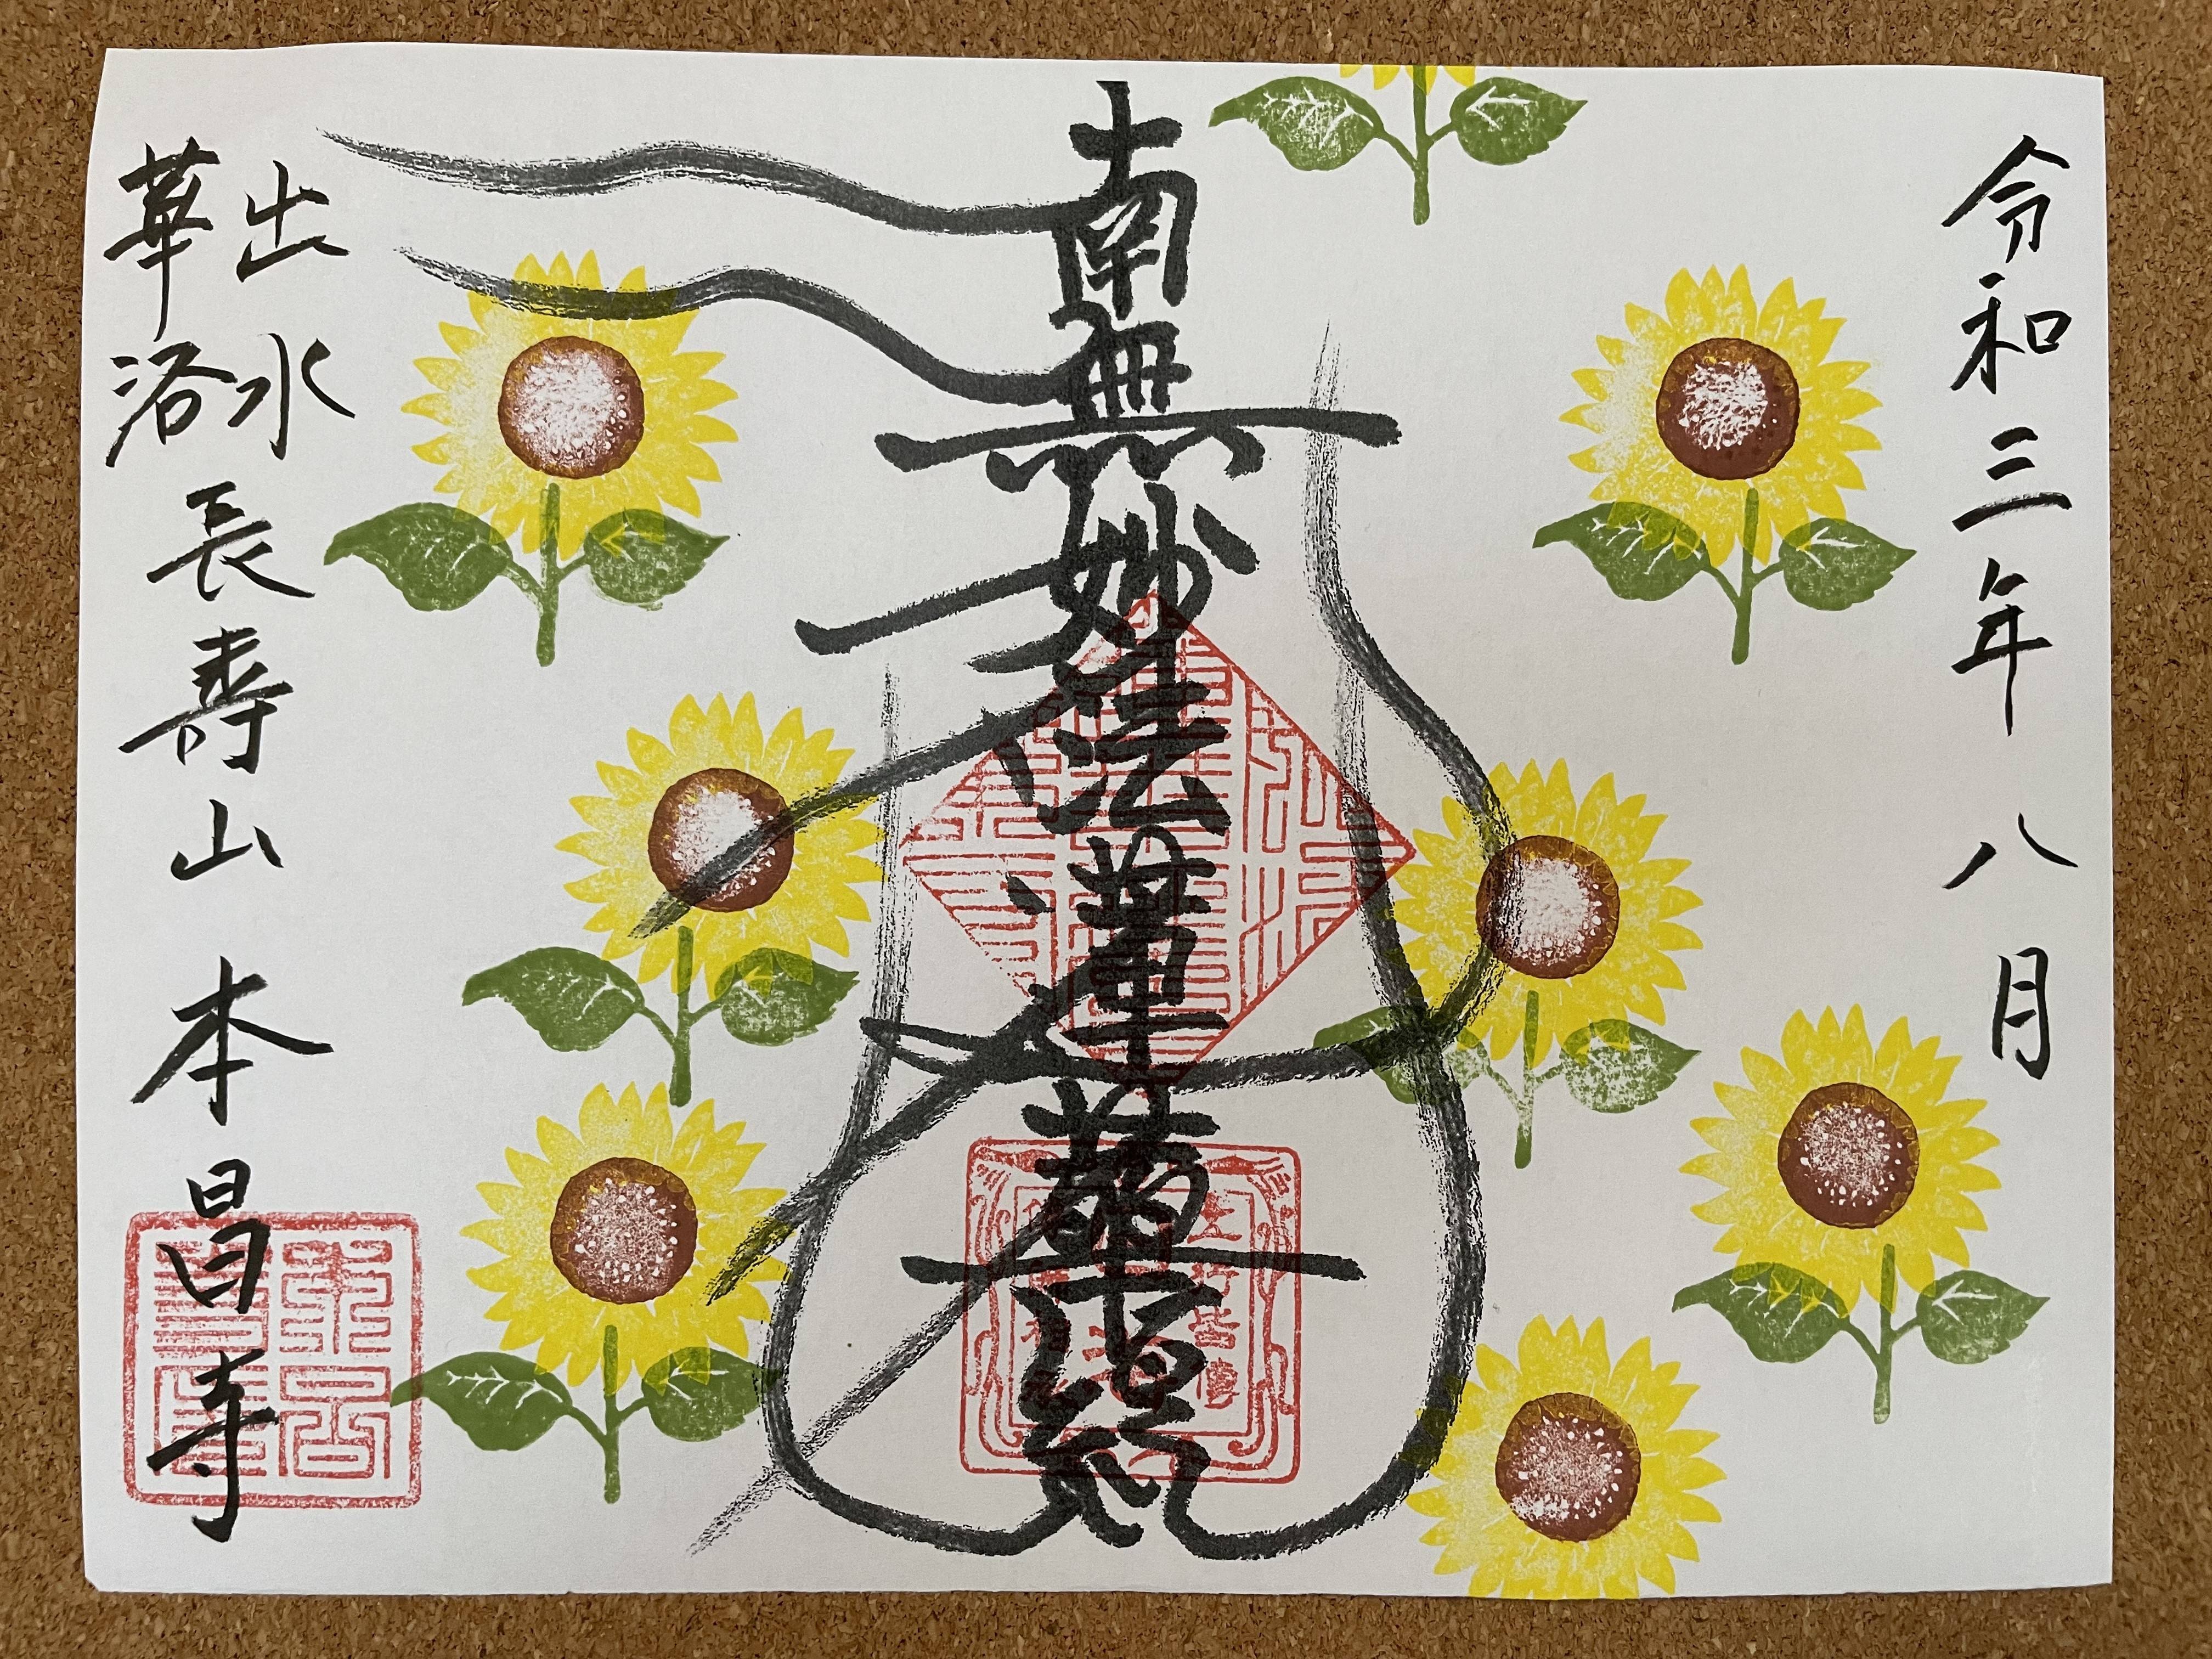 令和三年八月
南無妙法蓮華経
出水
華洛
長壽山 本昌寺